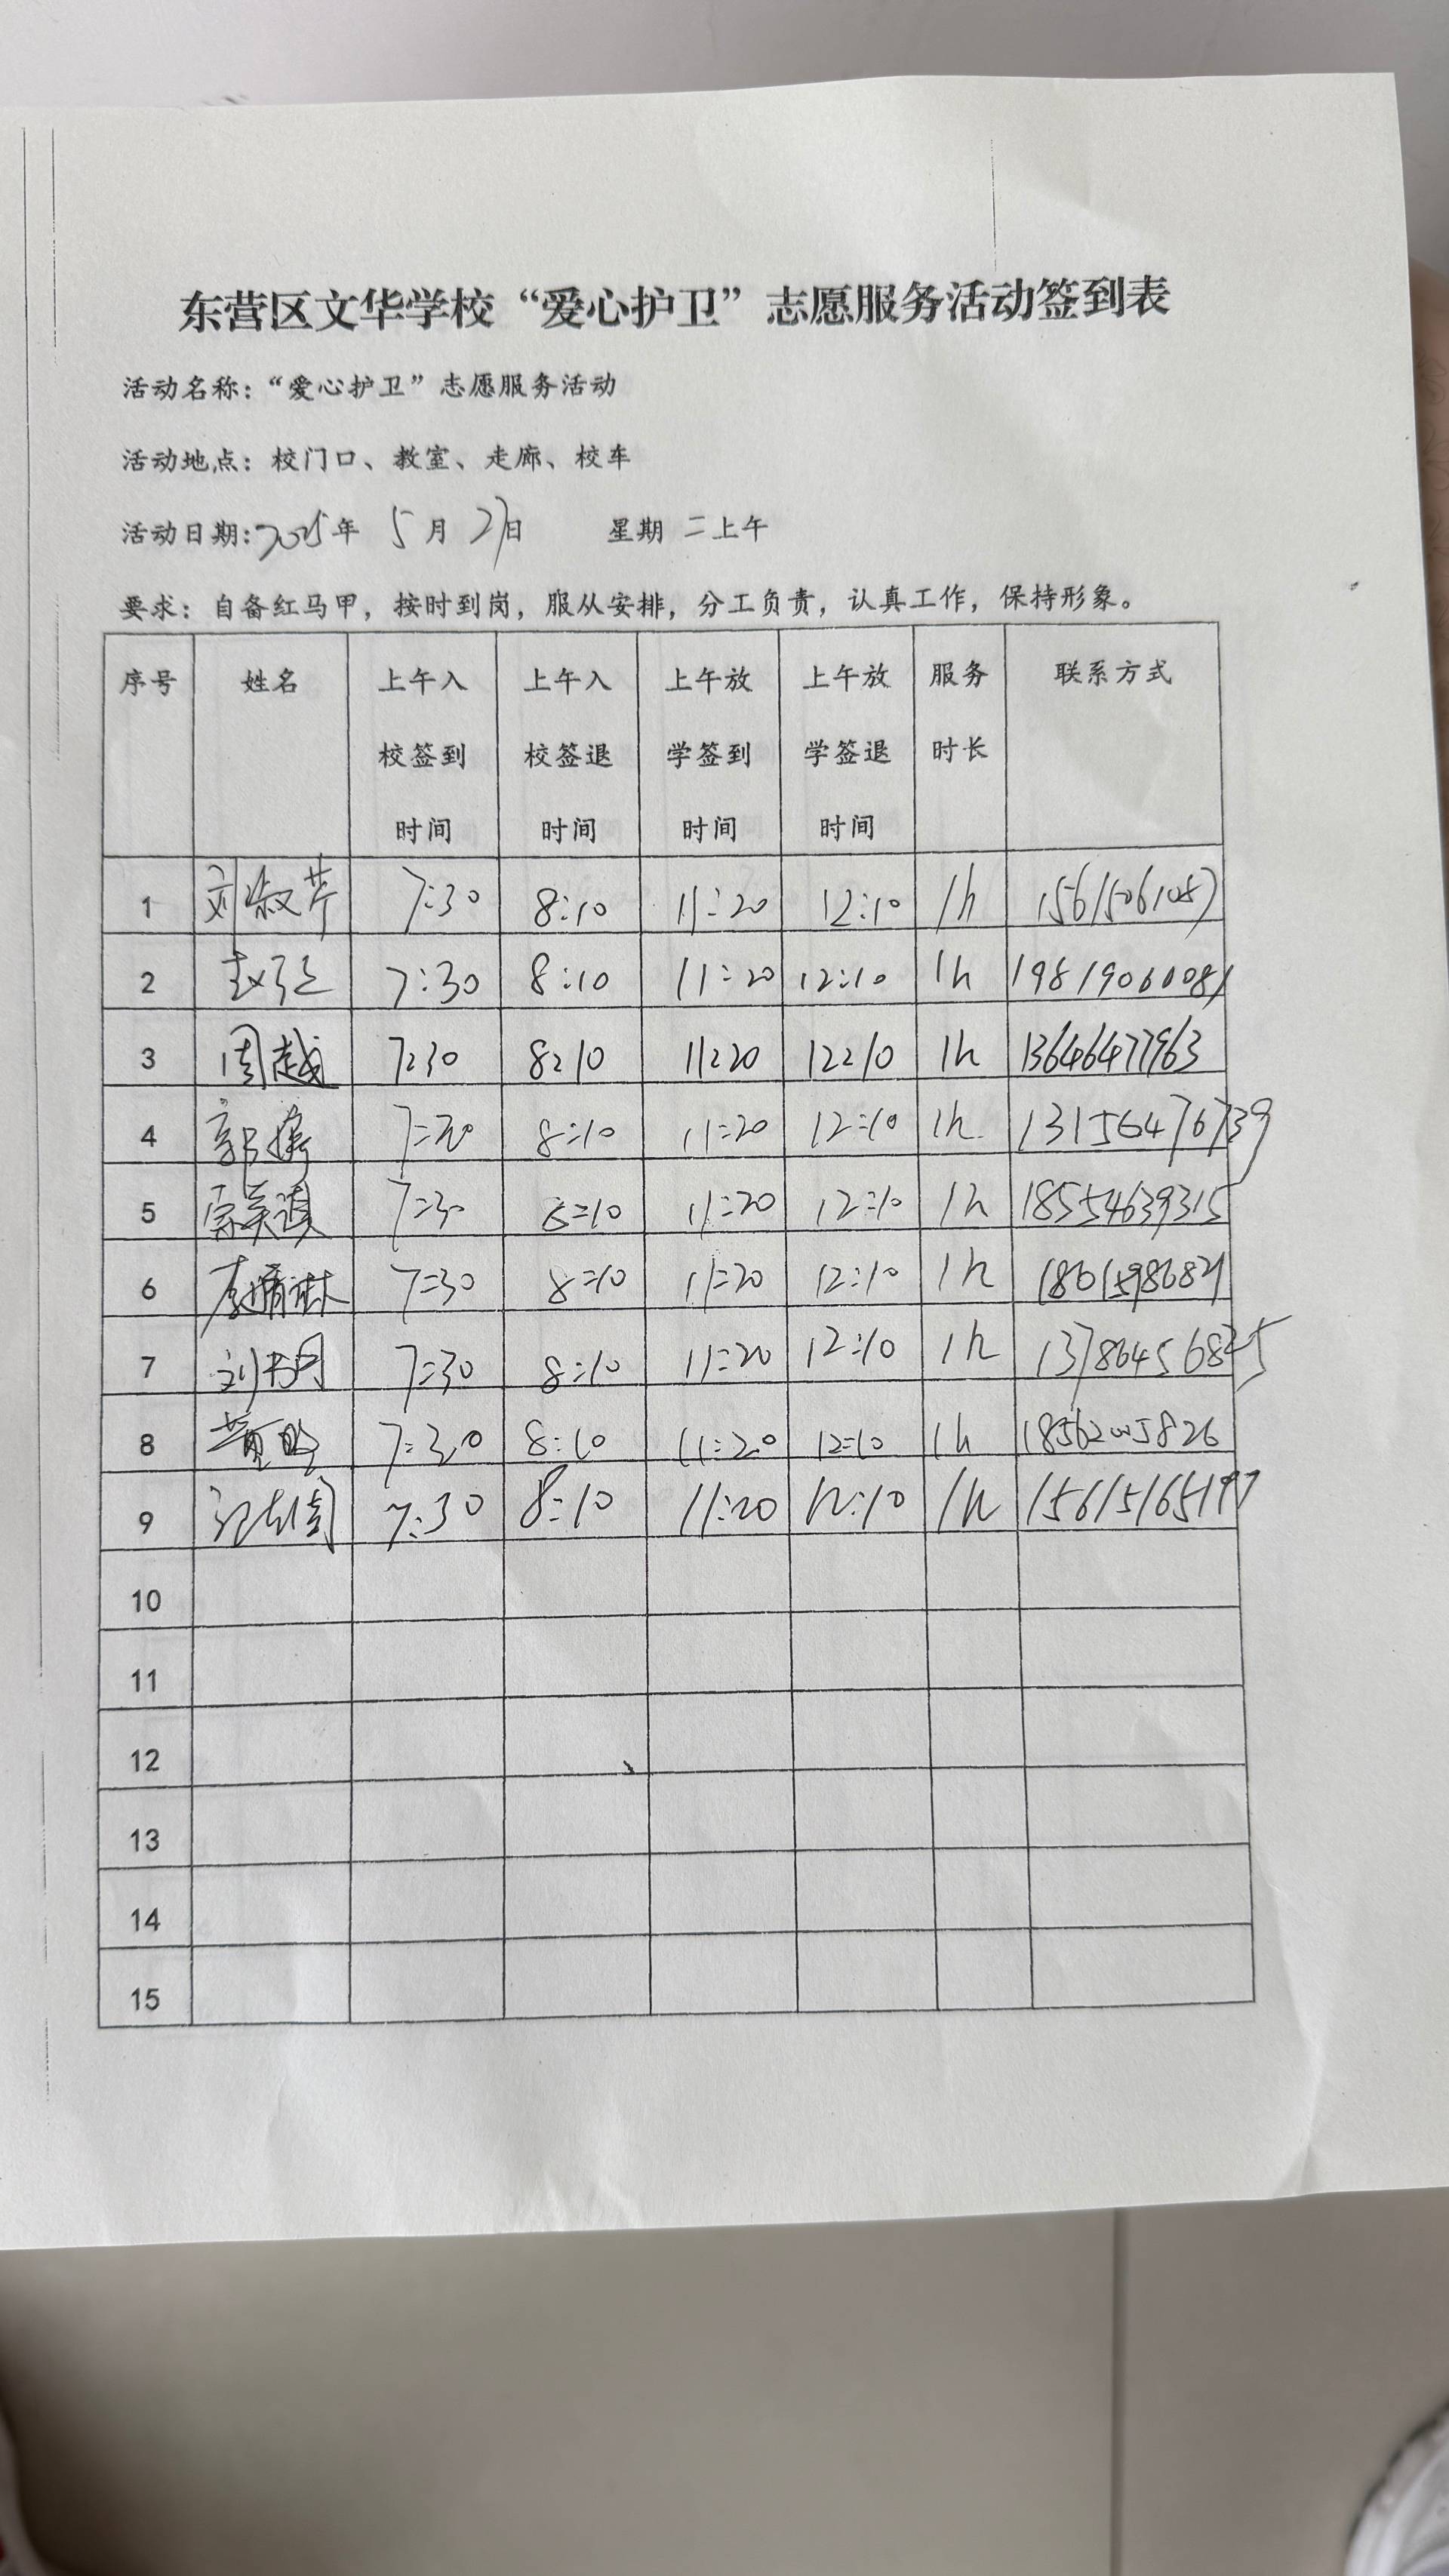 东营区文华学校“爱心护卫”志愿服务活动签到表
活动名称：“爱心护卫”志愿服务活动
活动地点：校门口、教室、走廊、校车
活动日期：2025年 5月 27日 星期 二上午
要求：自备红马甲，按时到岗，服从安排，分工负责，认真工作，保持形象。
序号 姓名 上午入校签到时间 上午入校签退时间 上午放学签到时间 上午放学签退时间 服务时长 联系方式
1 刘淑芹 7:30 8:10 11:20 12:10 1h 15615061057
2 7:30 8:10 11:20 12:10 1h 19819060081
3 周越 7:30 8:10 11:20 12:10 1h 13646477963
4 7:30 8:10 11:20 12:10 1h 13156476739
5 7:30 8:10 11:20 12:10 1h 18554639315
6 7:30 8:10 11:20 12:10 1h
7 7:30 8:10 11:20 12:10 1h
8 7:30 8:10 11:20 12:10 1h 18562005826
9 7:30 8:10 11:20 12:10 1h 15615165197
10
11
12
13
14
15